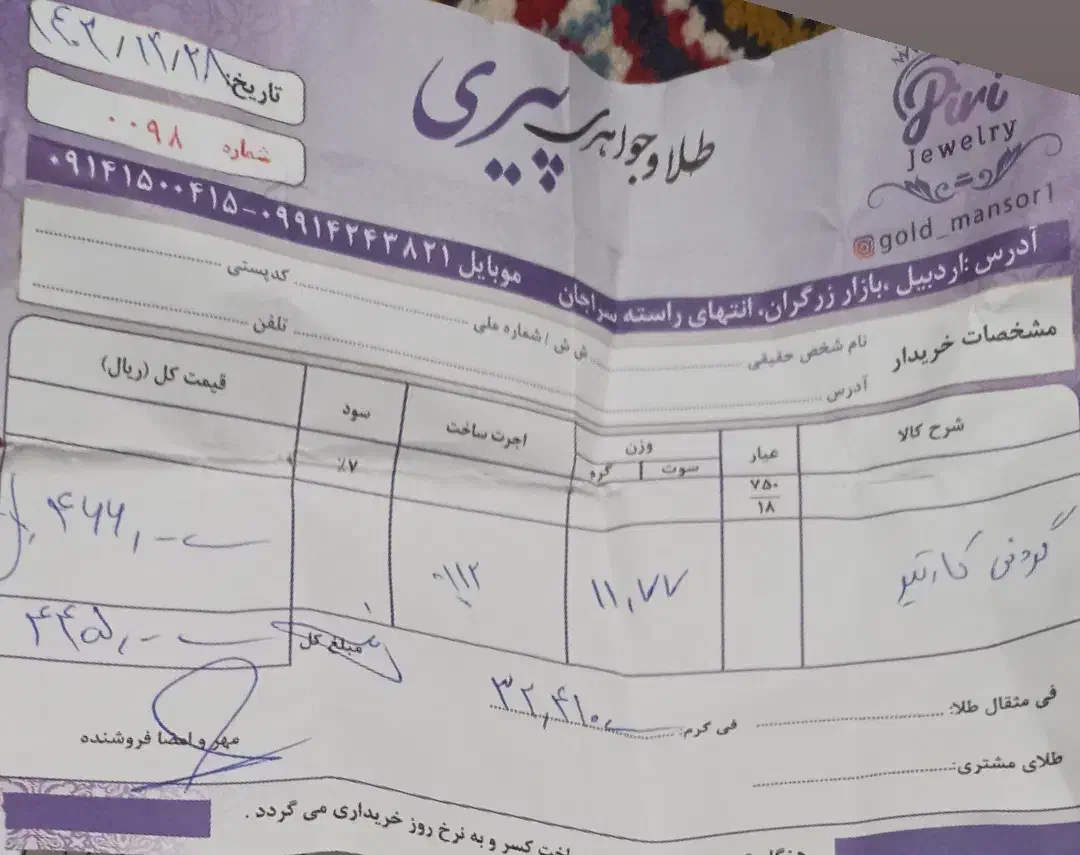 Piri
Jewelry
طلا و جواهری پیری
تاریخ: ۱۴۰۳/۱۲/۲۸
شماره ۰۰۹۸
gold_mansori
آدرس :اردبیل ،بازار زرگران، انتهای راسته سراجان موبایل ۰۹۱۴۱۵۰۰۴۱۵-۰۹۹۱۴۲۴۳۸۲۱
مشخصات خریدار
نام شخص حقیقی ش ش / شماره ملی کدپستی
آدرس تلفن
شرح کالا عیار وزن اجرت ساخت سود قیمت کل (ریال)
سوت گرم
۷۵۰
۱۸
٪۷
گردنی کارتیر ۱۱,۷۷ ۰/۱۲ ۴۶۶,۰۰۰
مبلغ کل ۴۴۵,۰۰۰
فی مثقال طلا: فی گرم: ۳۲,۴۱۰
طلای مشتری:
مهر و امضا فروشنده
اخت کسر و به نرخ روز خریداری می گردد .